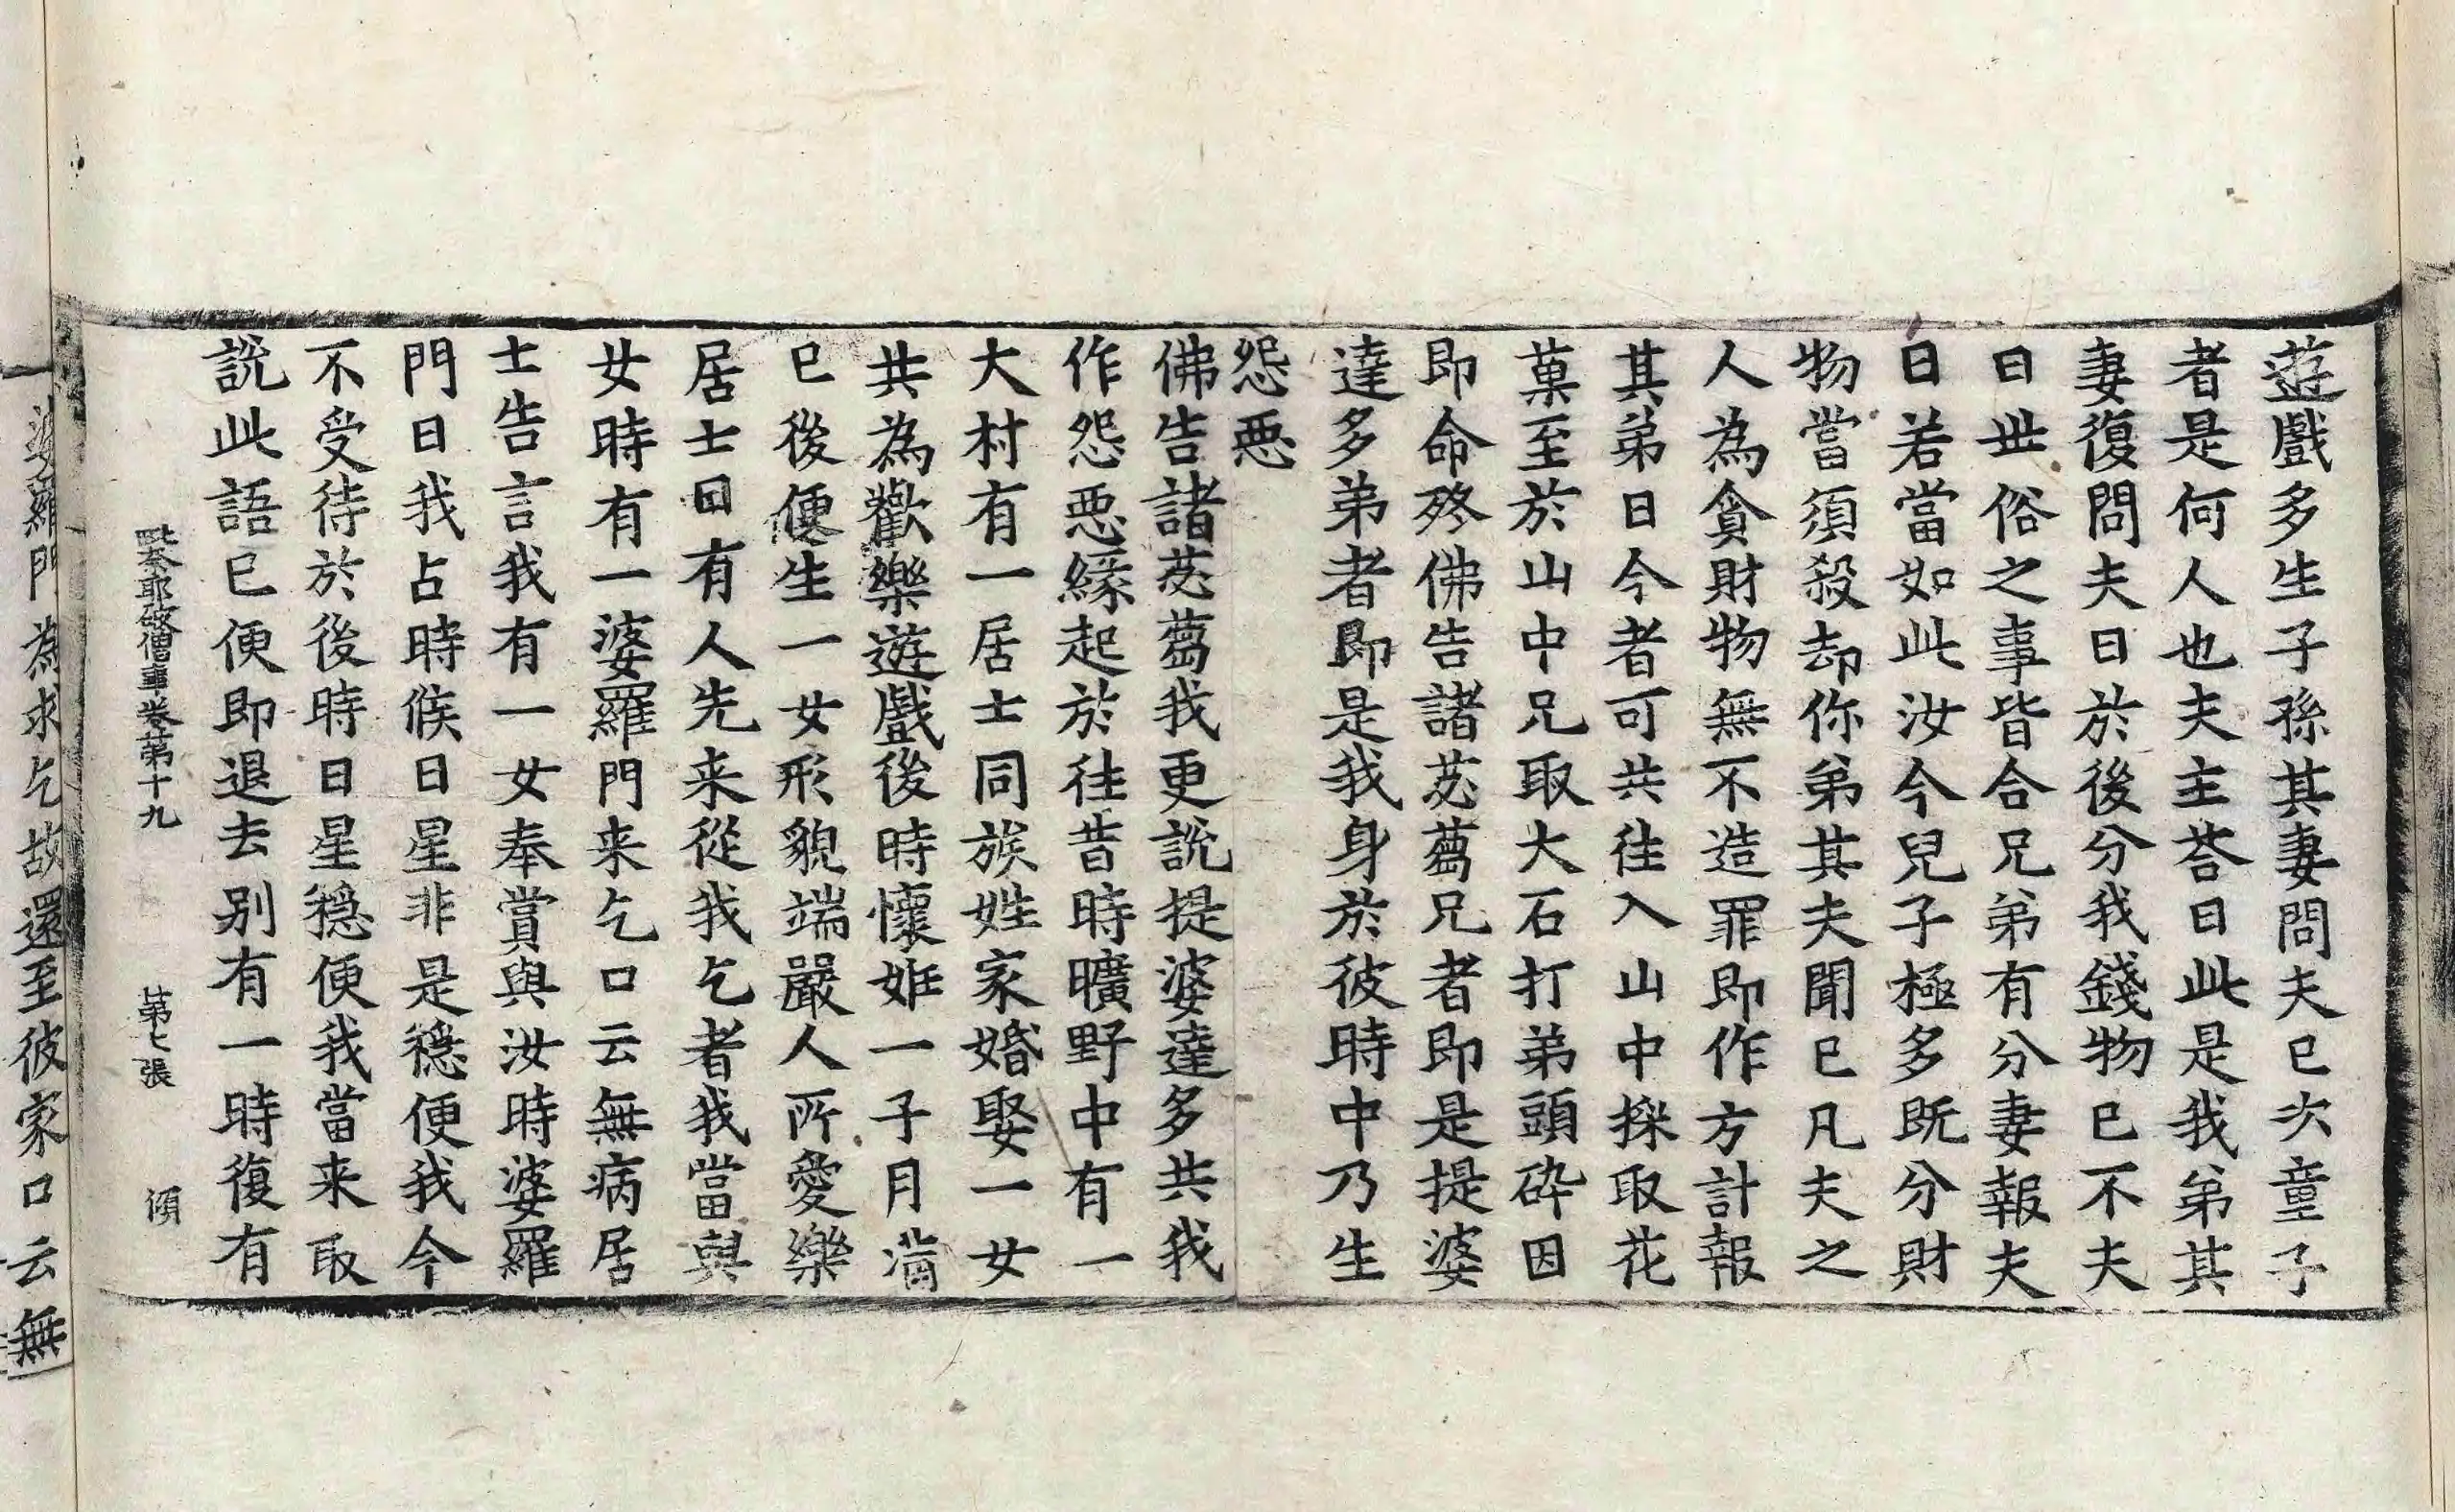 遊戲多生子孫其妻問夫已次童子
者是何人也夫主荅曰此是我弟其
妻復問夫曰於後分我錢物已不夫
曰世俗之事皆合兄弟有分妻報夫
曰若當如此汝今兒子極多既分財
物當須殺却你弟其夫聞已凡夫之
人為貪財物無不造罪即作方計報
其弟曰今者可共往入山中採取花
菓至於山中兄取大石打弟頭碎因
即命終佛告諸苾蒭兄者即是提婆
達多弟者即是我身於彼時中乃生
怨惡
佛告諸苾蒭我更說提婆達多共我
作怨惡緣起於往昔時曠野中有一
大村有一居士同族姓家婚娶一女
共為歡樂遊戲後時懷妊一子月滿
已後便生一女形貌端嚴人所愛樂
居士曰有人先来從我乞者我當與
女時有一婆羅門来乞口云無病居
士告言我有一女奉賞與汝時婆羅
門曰我占時候日星非是穩便我今
不受待於後時日星穩便我當来取
說此語已便即退去別有一時復有
毗奈耶破僧事卷第十九　第七張　傾
一婆羅門為求乞故還至彼家口云無